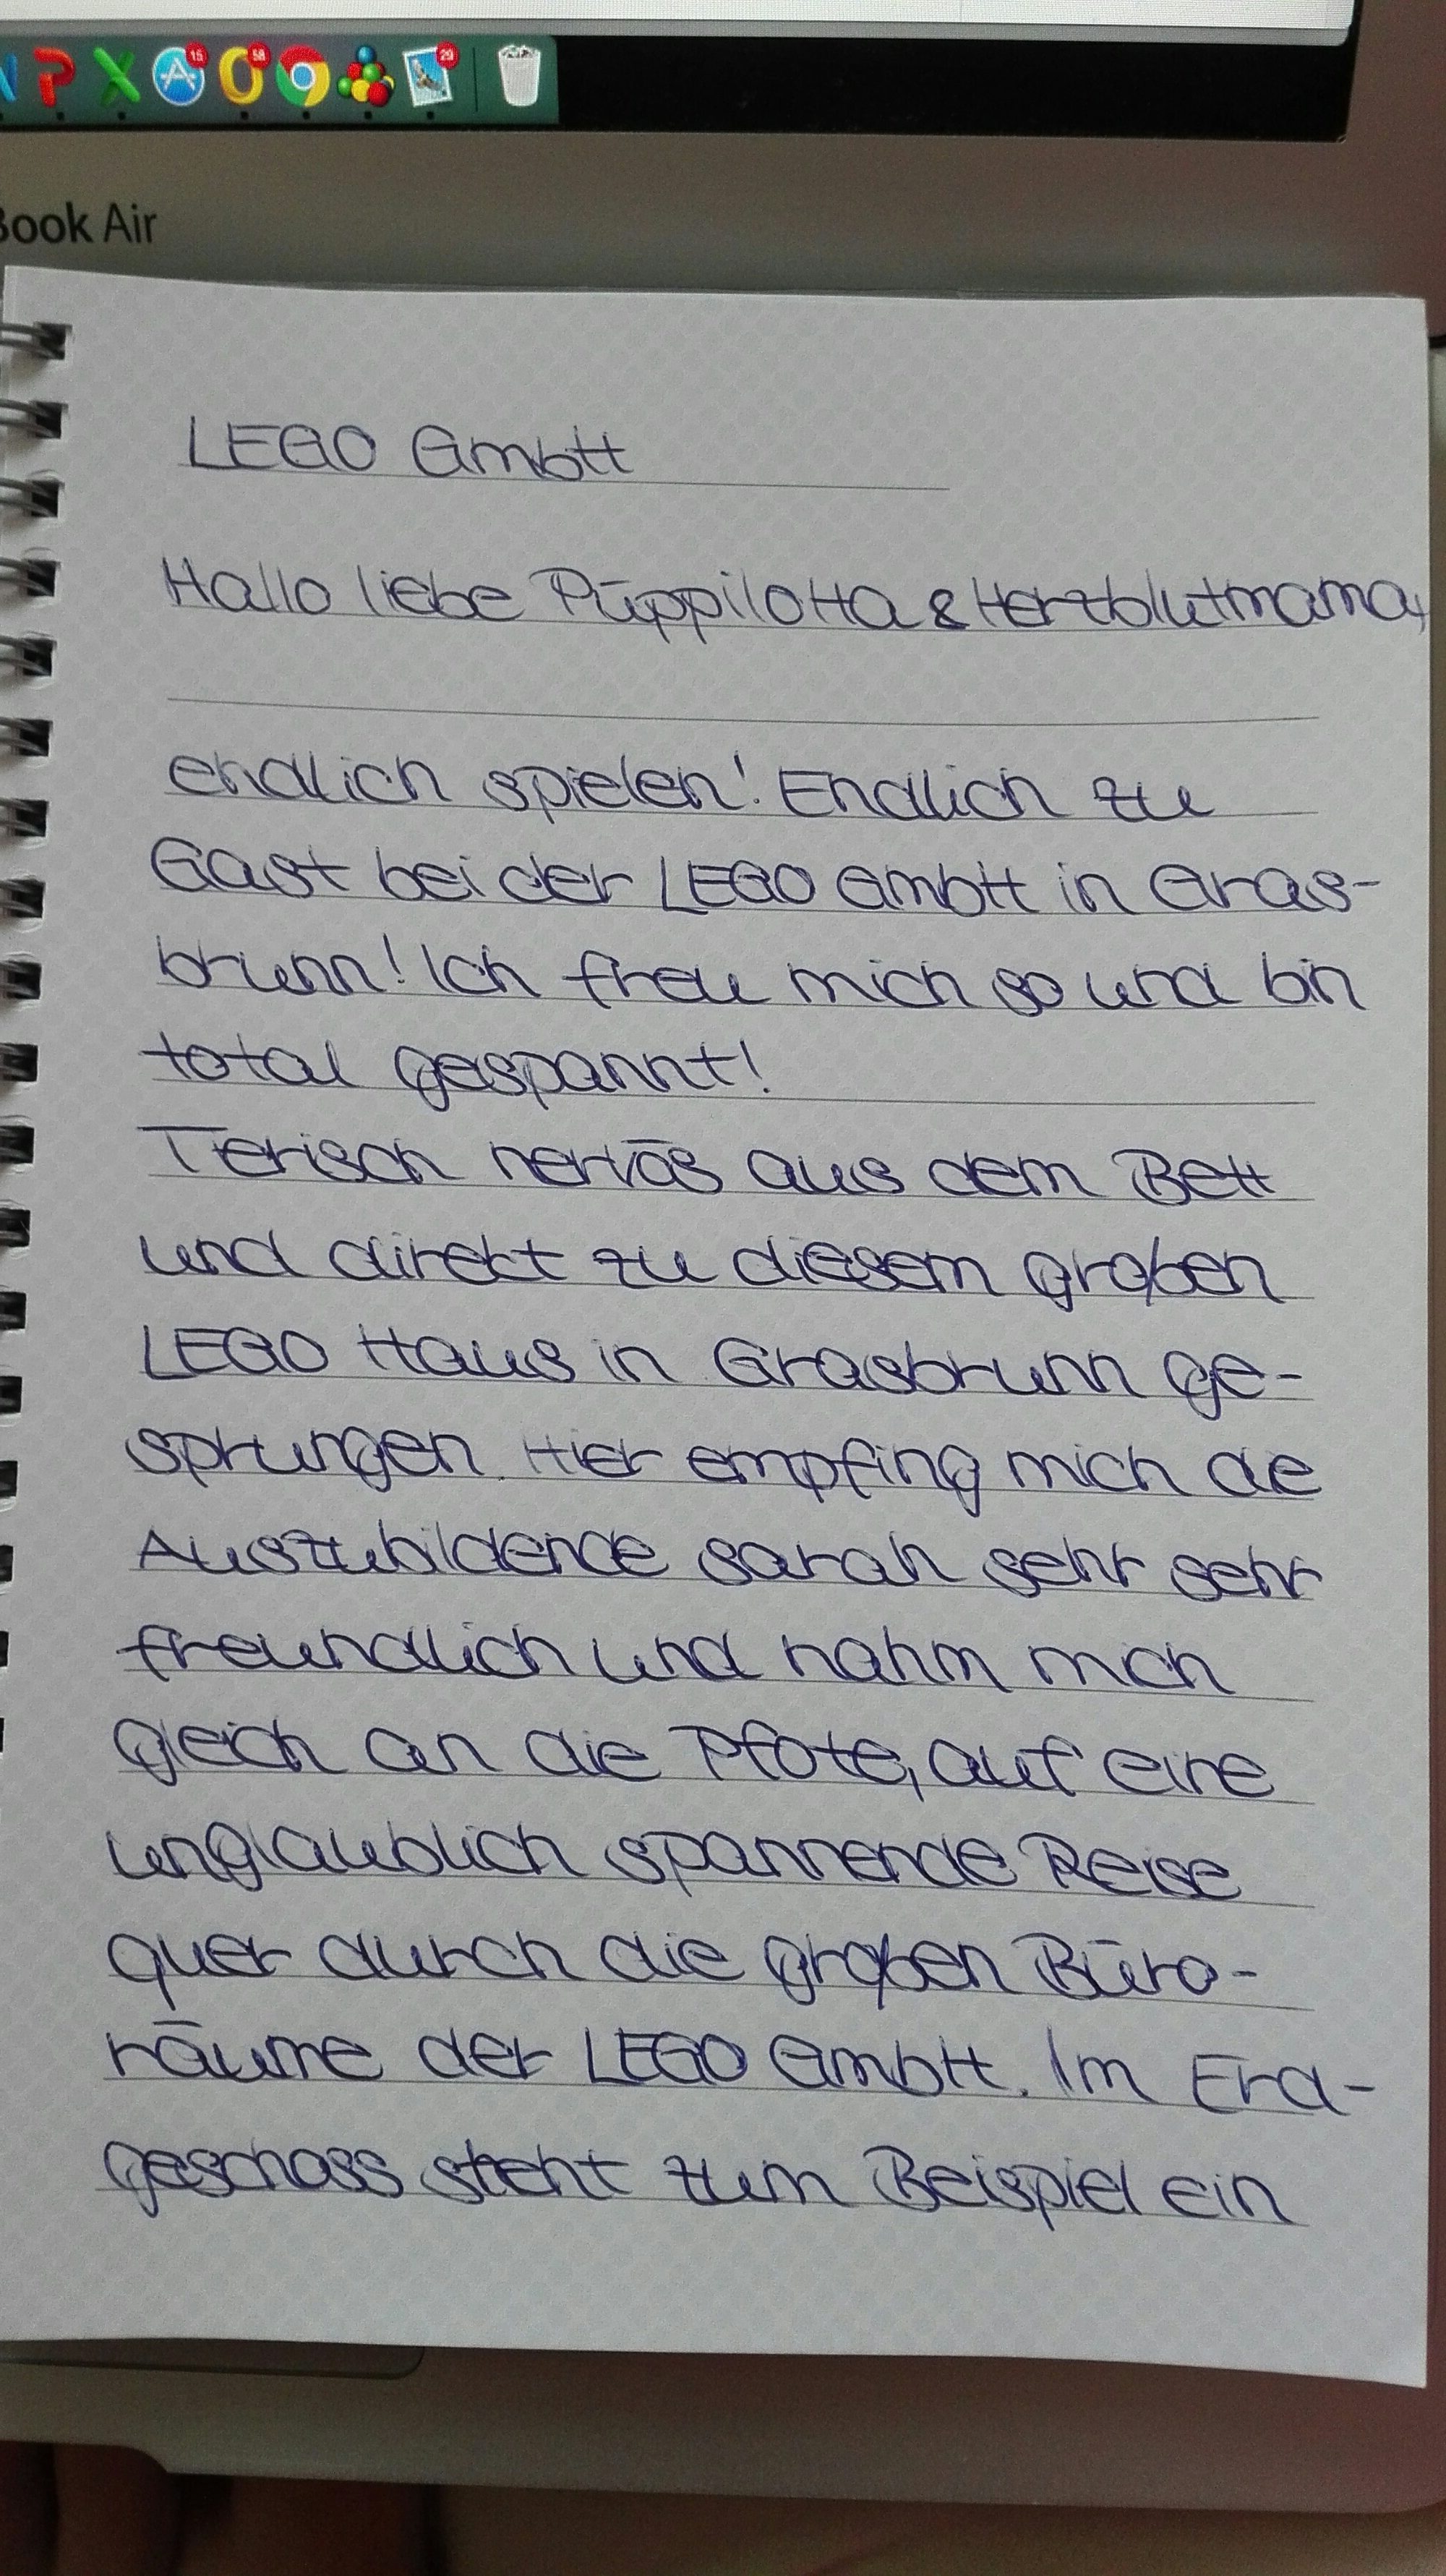 15
58
29
Book Air
LEGO GmbH
Hallo liebe Püppilotta & Herzblutmama,
endlich spielen! Endlich zu
Gast bei der LEGO GmbH in Gras-
brunn! Ich freu mich so und bin
total gespannt!
Tierisch nervös aus dem Bett
und direkt zu diesem großen
LEGO Haus in Grasbrunn ge-
sprungen. Hier empfing mich die
Auszubildende Sarah sehr sehr
freundlich und nahm mich
gleich an die Pfote, auf eine
unglaublich spannende Reise
quer durch die großen Büro-
räume der LEGO GmbH. Im Erd-
geschoss steht zum Beispiel ein